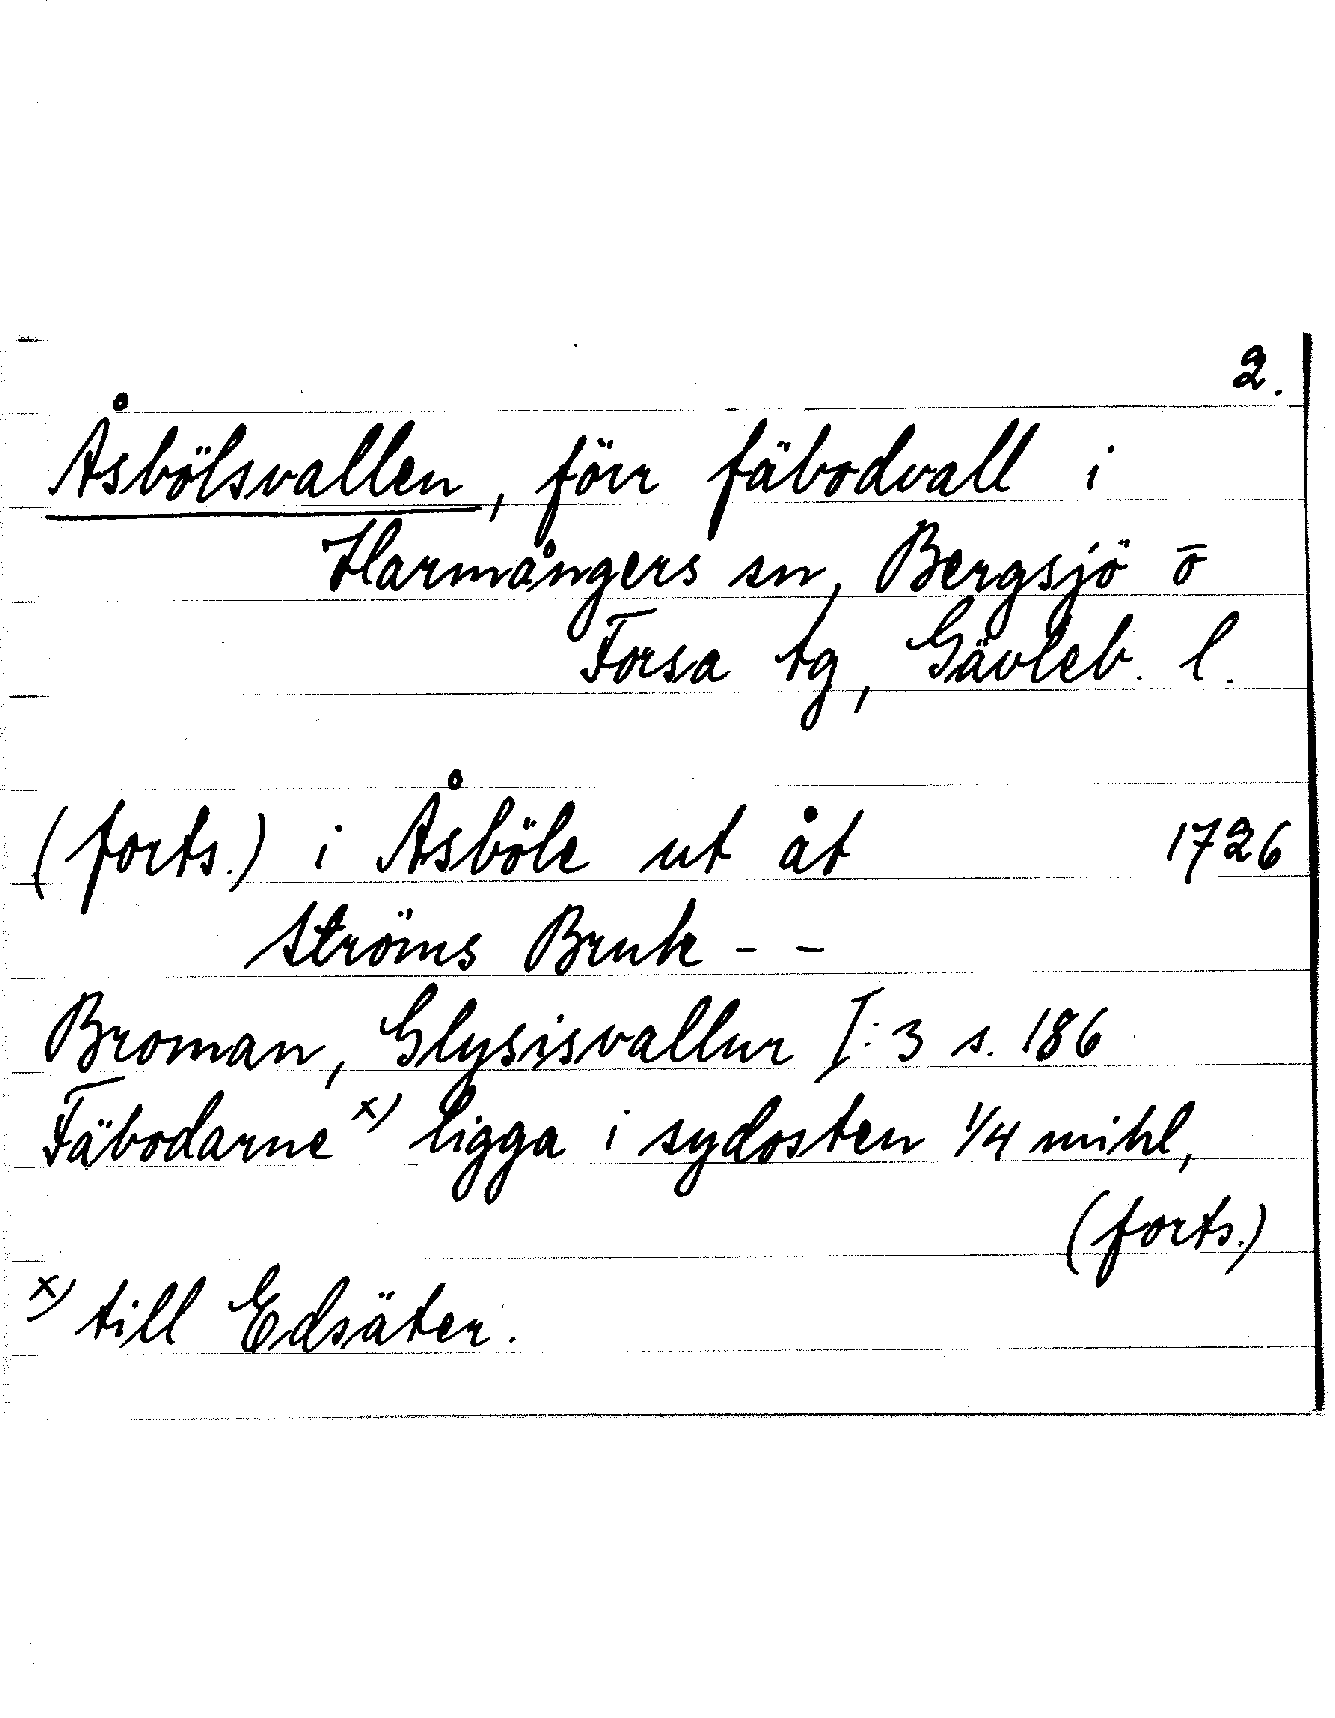 2.
Åsbölsvallen, förr fäbodvall i
Harmångers sn, Bergsjö ō
Forsa tg, Gävleb. l.
(forts.) i Åsböle ut åt 1726
Ströms Bruk - -
Broman, Glysisvallur I:3 s. 186
Fäbodarne x) ligga i sydosten 1/4 mihl,
(forts.)
x) till Edsäter.